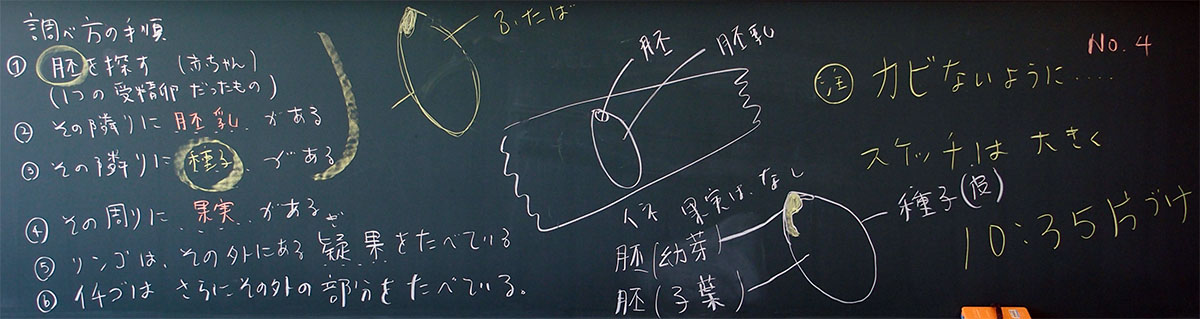 調べ方の手順
① 胚を探す (赤ちゃん)
(1つの受精卵だったもの)
② その隣りに 胚乳 がある
③ その隣りに 種子 がある
④ その周りに 果実 がある
⑤ リンゴは、その外にある 疑果をたべている
ぎ
⑥ イチゴは さらにその外の部分をたべている。
ふたば
胚
胚乳
果実はなし
胚(幼芽)
胚(子葉)
種子(皮)
No.4
注 カビないように……
スケッチは 大きく
10:35片づけ